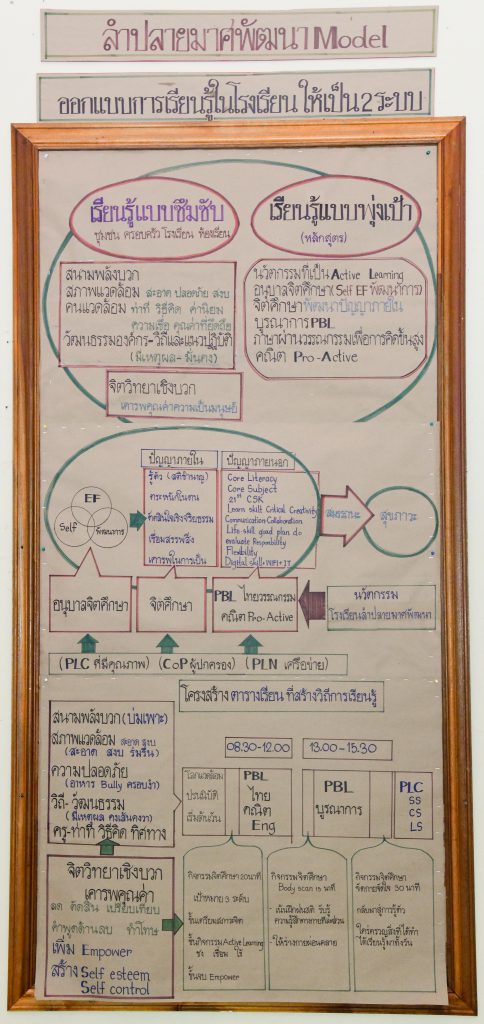 ลำปลายมาศพัฒนา Model
ออกแบบการเรียนรู้ในโรงเรียน ให้เป็น 2 ระบบ
เรียนรู้แบบซึมซับ
ชุมชน ครอบครัว โรงเรียน ห้องเรียน
เรียนรู้แบบพุ่งเป้า
(หลักสูตร)
สนามพลังบวก
สภาพแวดล้อม สะอาด ปลอดภัย สงบ
คนแวดล้อม ท่าที วิธีคิด ค่านิยม
ความเชื่อ คุณค่าที่ยึดถือ
วัฒนธรรมองค์กร-วิถีและแนวปฏิบัติ
(มีเหตุผล-มั่นคง)
นวัตกรรมที่เป็น Active Learning
อนุบาลจิตศึกษา (Self EF พัฒนาการ)
จิตศึกษาพัฒนาปัญญาภายใน
บูรณาการ PBL
ภาษาผ่านวรรณกรรมเพื่อการคิดขั้นสูง
คณิต Pro-Active
จิตวิทยาเชิงบวก
เคารพคุณค่าความเป็นมนุษย์
EF
Self
พัฒนาการ
ปัญญาภายใน
รู้ตัว (สติชำนาญ)
ตระหนักในตน
ตัดสินใจเชิงจริยธรรม
เชื่อมสรรพสิ่ง
เคารพในการเป็น
ปัญญาภายนอก
Core Literacy
Core Subject
21st CSK
Learn skill Critical Creativity
Communication Collaboration
Life skill goal plan do
evaluate Responsibility
Flexibility
Digital skill
สมรรถนะ
สุขภาวะ
อนุบาลจิตศึกษา
จิตศึกษา
PBL ไทยวรรณกรรม
คณิต Pro-Active
นวัตกรรม
โรงเรียนลำปลายมาศพัฒนา
(PLC ที่มีคุณภาพ) (CoP ผู้ปกครอง) (PLN เครือข่าย)
โครงสร้าง ตารางเรียน ที่สร้างวิถีการเรียนรู้
สนามพลังบวก (บ่มเพาะ)
สภาพแวดล้อม สะอาด สงบ
(สะอาด สงบ ร่มรื่น)
ความปลอดภัย
(อาหาร Bully ครอบงำ)
วิถี-วัฒนธรรม
(มีเหตุผล คงเส้นคงวา)
ครู-ท่าที วิธีคิด ทิศทาง
08.30-12.00
13.00-15.30
PBL
ไทย
คณิต
Eng
PBL
บูรณาการ
PLC
SS
CS
LS
จิตวิทยาเชิงบวก
เคารพคุณค่า
ลด ตัดสิน เปรียบเทียบ
คำพูดด้านลบ ทำโทษ
เพิ่ม Empower
สร้าง Self esteem
Self control
กิจกรรมจิตศึกษา 20 นาที
เป้าหมาย 3 ระดับ
ขั้นเตรียมสภาวะจิต
ขั้นกิจกรรม Active Learning
ชง เชื่อม ใช้
ขั้นจบ Empower
กิจกรรมจิตศึกษา
Body scan 15 นาที
ให้ร่างกายผ่อนคลาย
กิจกรรมจิตศึกษา
30 นาที
กลับมาสู่การรู้ตัว
ใคร่ครวญสิ่งที่ได้ทำ
ได้เรียนรู้มาทั้งวัน